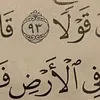 قَوْلًا ٩٣ قَا
فِي ٱلْأَرْضِ فَ